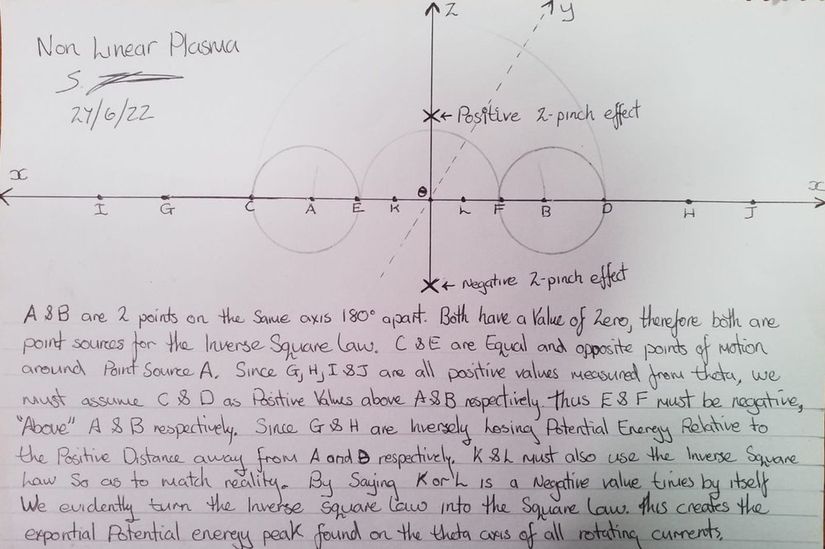 Non Linear Plasma
S.
24/6/22
z
y
x
x
← Positive Z-pinch effect
θ
I G C A E K L F B D H J
← Negative Z-pinch effect
A & B are 2 points on the Same axis 180° apart. Both have a Value of Zero, therefore both are
point sources for the Inverse Square Law. C & E are Equal and opposite points of Motion
around Point Source A. Since G, H, I & J are all positive values measured from theta, we
must assume C & D as Positive Values above A & B respectively. Thus E & F must be negative,
"Above" A & B respectively. Since G & H are Inversely Losing Potential Energy Relative to
the Positive Distance away from A and B respectively. K & L must also use the Inverse Square
Law So as to match reality. By Saying K or L is a Negative value times by itself
We evidently turn the Inverse Square Law into the Square Law. This creates the
expontial Potential energy peak found on the theta axis of all rotating currents.